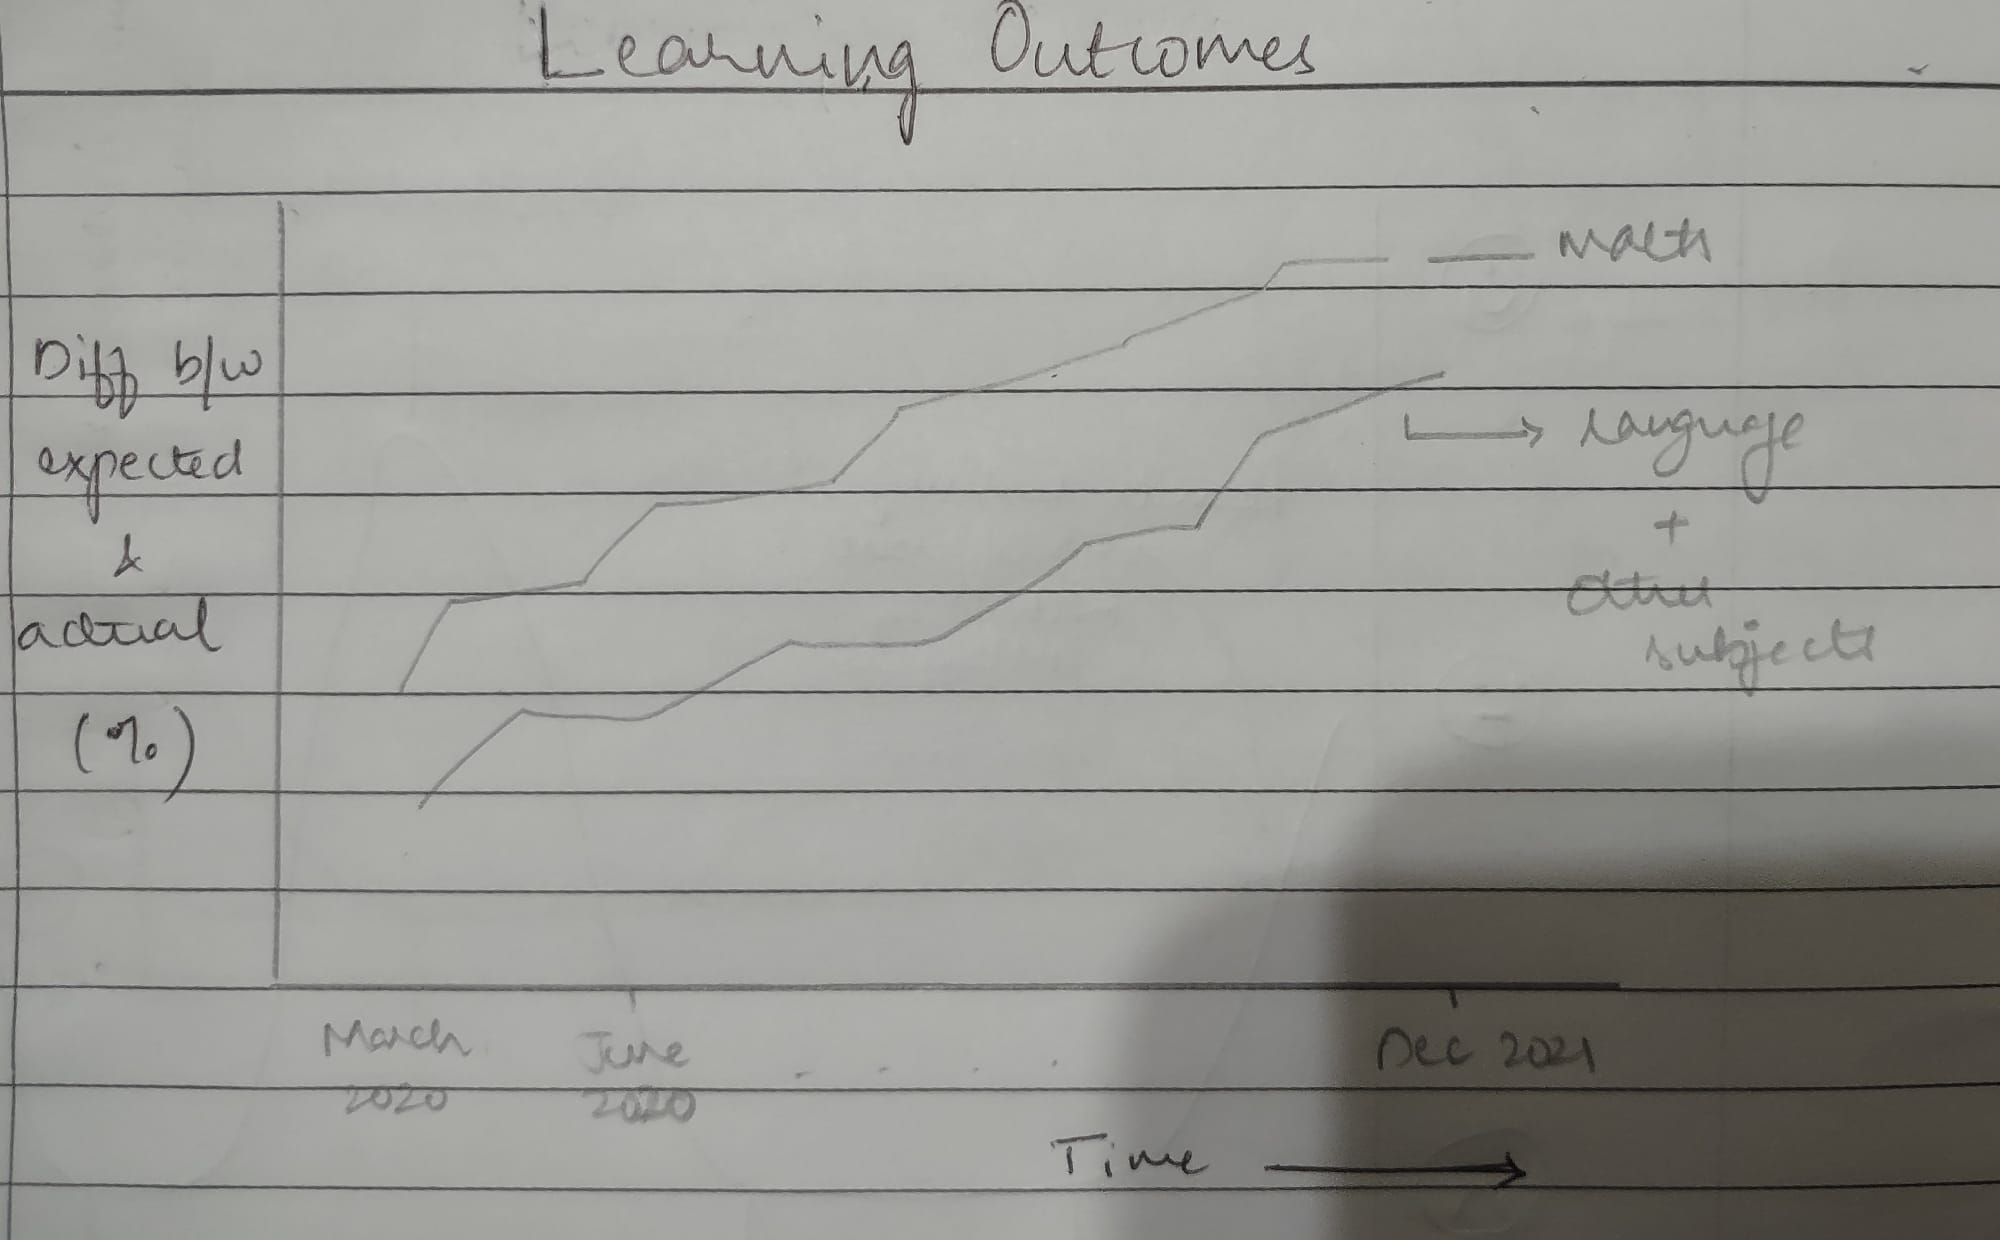 Learning Outcomes
Math
Diff b/w
expected
&
actual
(%)
Language
+
other
subjects
March
2020
June
2020
. . . .
Dec 2021
Time